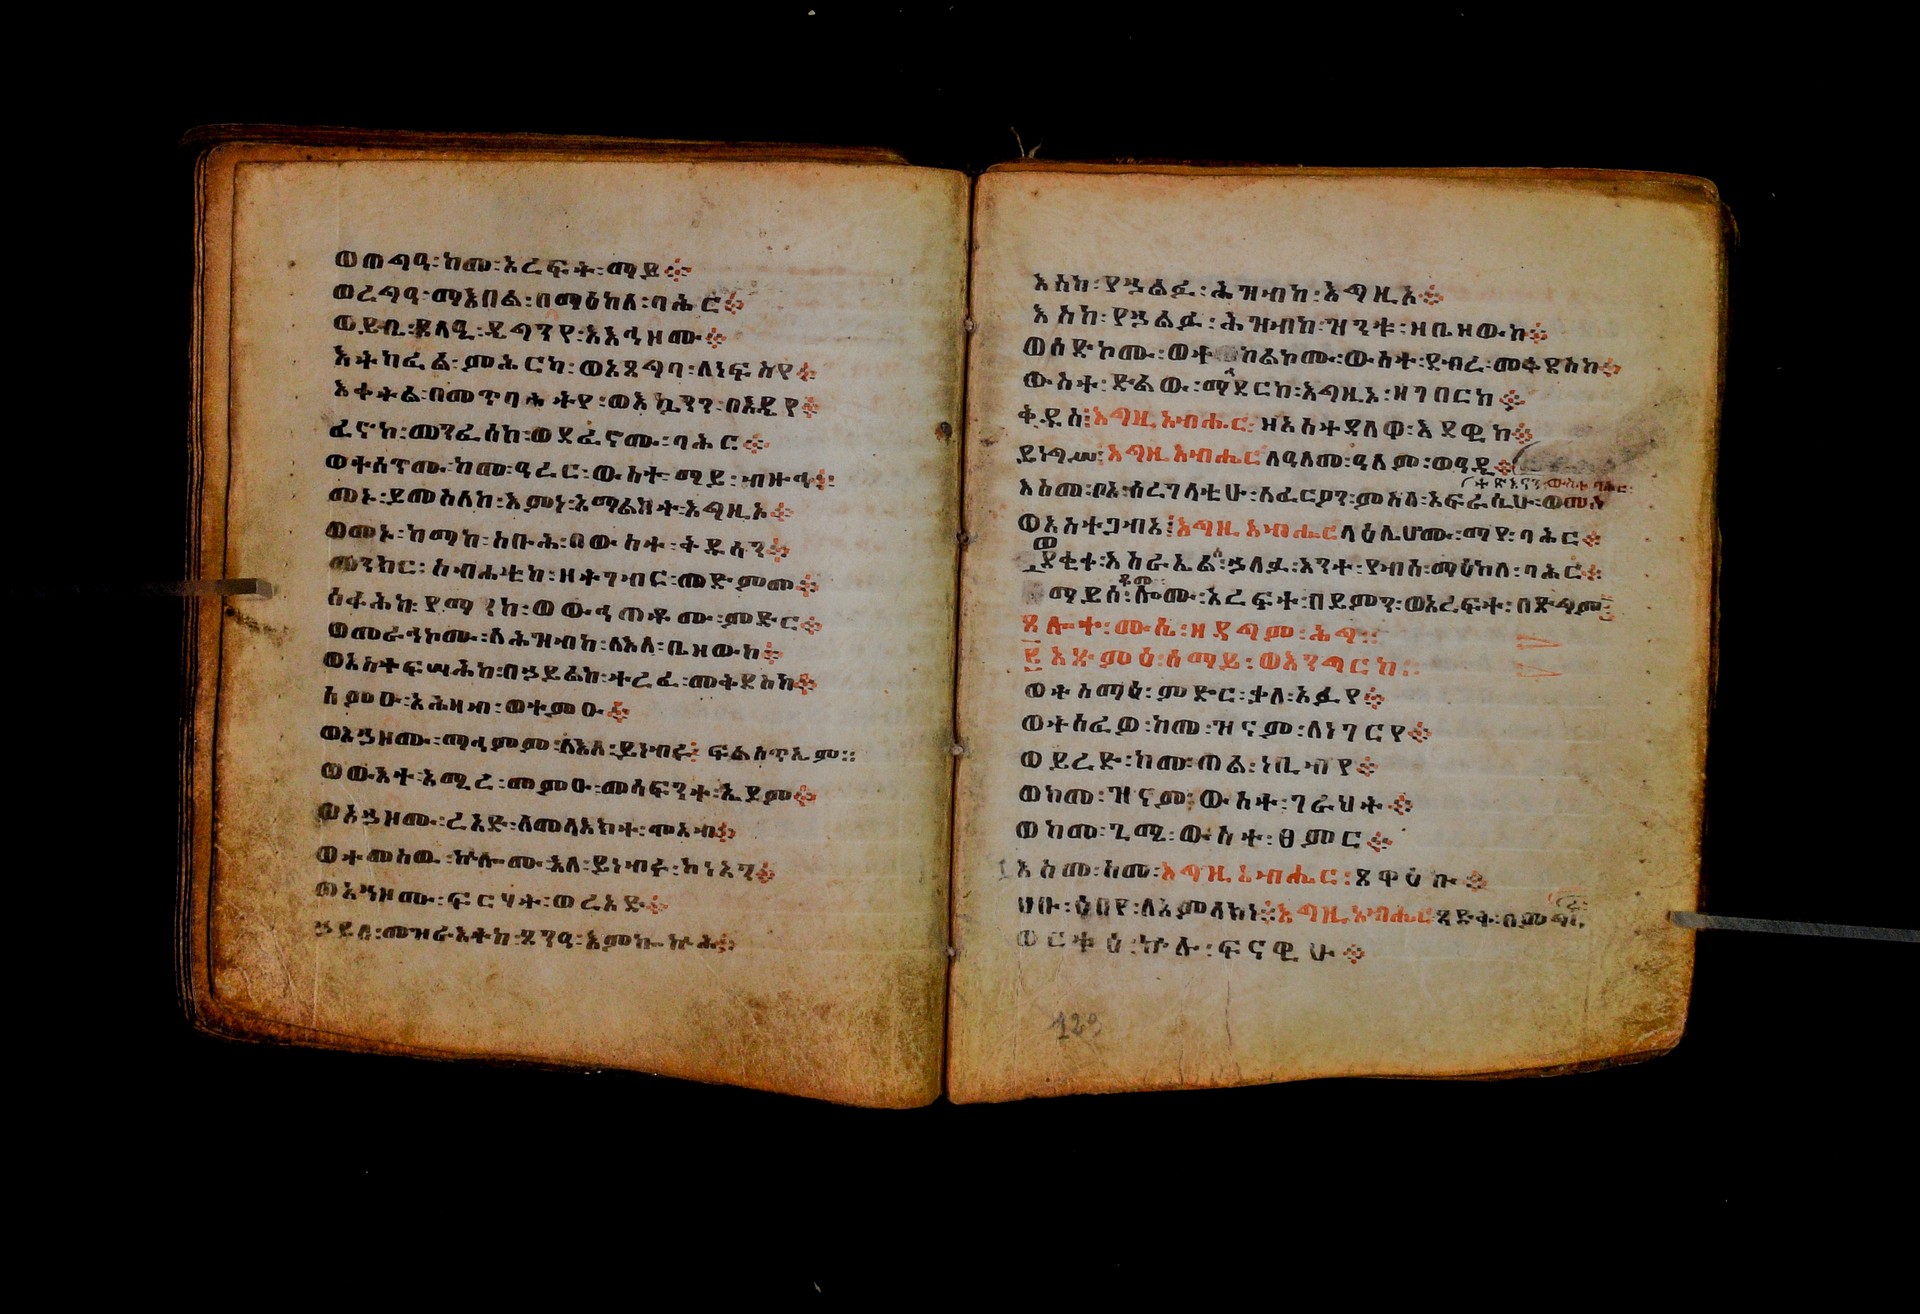 ወጠግዓ፡ከመ፡አረፍት፡ማይ፨
ወረግዓ፡ማእበል፡በማዕከለ፡ባሕር፨
ወይቤ፡ጸላዒ፡ዴግንየ፡እእኅዘሙ፨
እትካፈል፡ምሕርካ፡ወአጸግባ፡ለነፍስየ፨
እቀትል፡በመጥባሕትየ፡ወእኴንን፡በእዴየ፨
ፈኖከ፡መንፈሰከ፡ወደፈኖሙ፡ባሕር፨
ወተሰጥሙ፡ከመ፡ዓረር፡ውስተ፡ማይ፡ብዙኅ፨
መኑ፡ይመስለከ፡እምነ፡አማልክት፡እግዚኦ፨
ወመኑ፡ከማከ፡ስቡሕ፡በውስተ፡ቅዱሳን፨
መንክር፡ስብሐቲከ፡ዘትገብር፡መድምመ፨
ሰፋሕከ፡የማንከ፡ወውኅጠቶሙ፡ምድር፨
ወመራኅኮሙ፡ለሕዝብከ፡ለእለ፡ቤዘውከ፨
ወአስተፍሣሕከ፡በኃይልከ፡ተረፈ፡መቅደስከ፨
ሰምዑ፡አሕዛብ፡ወተምዑ፨
ወአኀዘሙ፡ማሕምም፡ለእለ፡ይነብሩ፡ፍልስጥኤም፡፡
ወውእተ፡አሚረ፡መምዑ፡መሳፍንተ፡ኤዶም፨
ወአኀዘሙ፡ረአድ፡ለመላእክተ፡ሞአብ፨
ወተመስወ፡ኵሎሙ፡እለ፡ይነብሩ፡ከነአን፨
ወአኀዘሙ፡ፍርሃት፡ወረአድ፨
ኃይለ፡መዝራእትከ፡ጸንዓ፡እምኰኵሕ፨
እስከ፡የኀልፍ፡ሕዝብከ፡እግዚኦ፨
እስከ፡የኀልፍ፡ሕዝብከ፡ዝንቱ፡ዘቤዘውከ፨
ወሰድኮሙ፡ወተከልኮሙ፡ውስተ፡ደብረ፡መቅደስከ፨
ውስተ፡ድልው፡ማኅደርከ፡እግዚኦ፡ዘገበርከ፨
ቅዱስ፡እግዚአብሔር፡ዘአስተዳለዋ፡እደዊከ፨
ይነግሥ፡እግዚአብሔር፡ለዓለመ፡ዓለም፡ወዓዲ፨
እስመ፡ቦአ፡ሰረገላቲሁ፡ለፈርዖን፡ምስለ፡አፍራሲሁ፡ወመስ
ተጽእናን፡ውስተ፡ባሕር፡
ወአስተጋብአ፡እግዚአብሔር፡ላዕሌሆሙ፡ማየ፡ባሕር፨
ወደቂቀ፡እስራኤልሰ፡ኀለፉ፡እንተ፡የብስ፡ማዕከለ፡ባሕር፨
ማይሰ፡ቆመ፡ሎሙ፡አረፍት፡በይምን፡ወአረፍት፡በጽግም፡
ጸሎተ፡ሙሴ፡ዘዳግም፡ሕግ፡፡
፪ አጽምዕ፡ሰማይ፡ወእንግርከ፡፡
ወትስማዕ፡ምድር፡ቃለ፡አፉየ፨
ወተሰፈወ፡ከመ፡ዝናም፡ለነገርየ፨
ወይረድ፡ከመ፡ጠል፡ነቢብየ፨
ወከመ፡ዝናም፡ውስተ፡ገራህት፨
ወከመ፡ጊሜ፡ውስተ፡ፀምር፨
እስመ፡ስመ፡እግዚአብሔር፡ጸዋዕኩ፨
ሀቡ፡ዕበየ፡ለአምላክነ፨እግዚአብሔር፡ጻድቅ፡በምግባ
ሩ፡
ወርቱዕ፡ኵሉ፡ፍናዊሁ፨